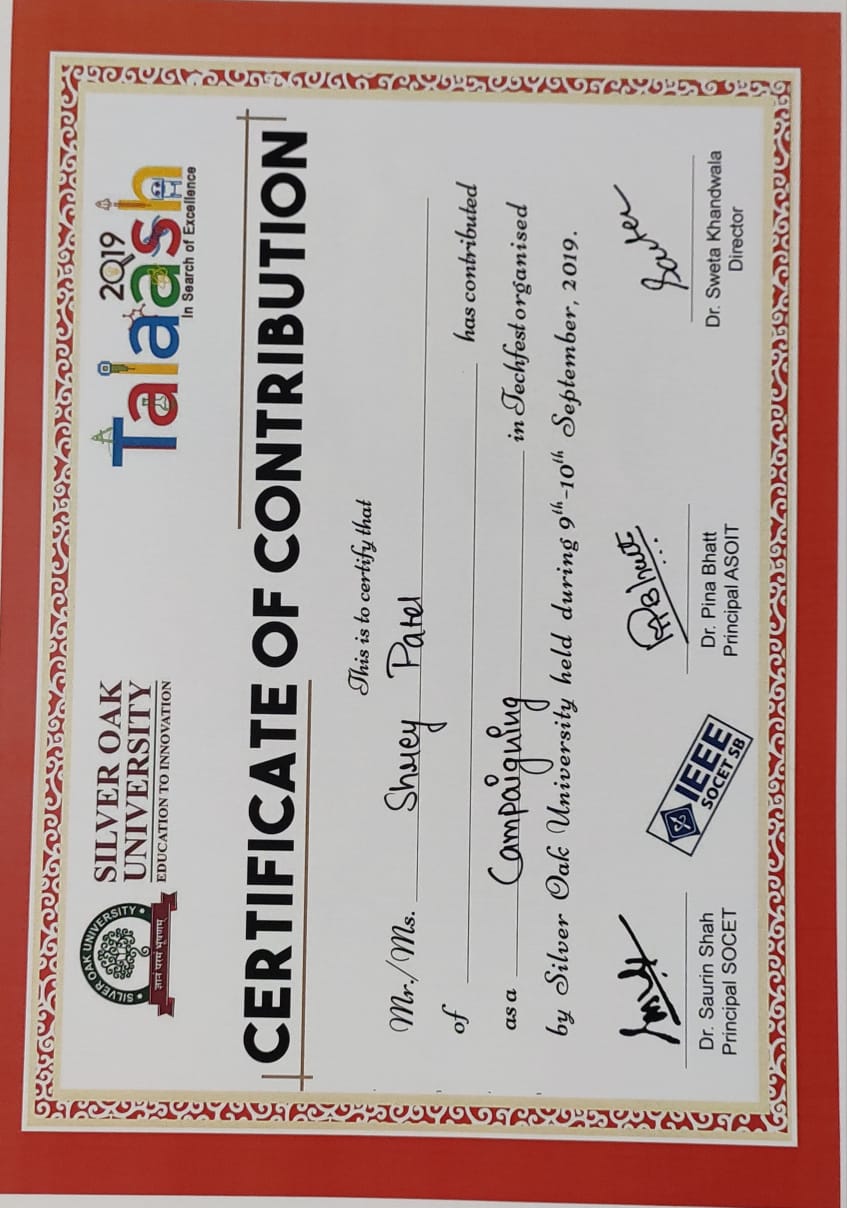 SILVER OAK UNIVERSITY
ज्ञानं परमं भूषणम्
SILVER OAK
UNIVERSITY
EDUCATION TO INNOVATION
2019
Talaash
In Search of Excellence
CERTIFICATE OF CONTRIBUTION
This is to certify that
Mr./Ms. Shrey Patel
of has contributed
as a Campaigning in Techfest organised
by Silver Oak University held during 9th-10th September, 2019.
Dr. Saurin Shah
Principal SOCET
IEEE
SOCET SB
Dr. Pina Bhatt
Principal ASOIT
Dr. Sweta Khandwala
Director